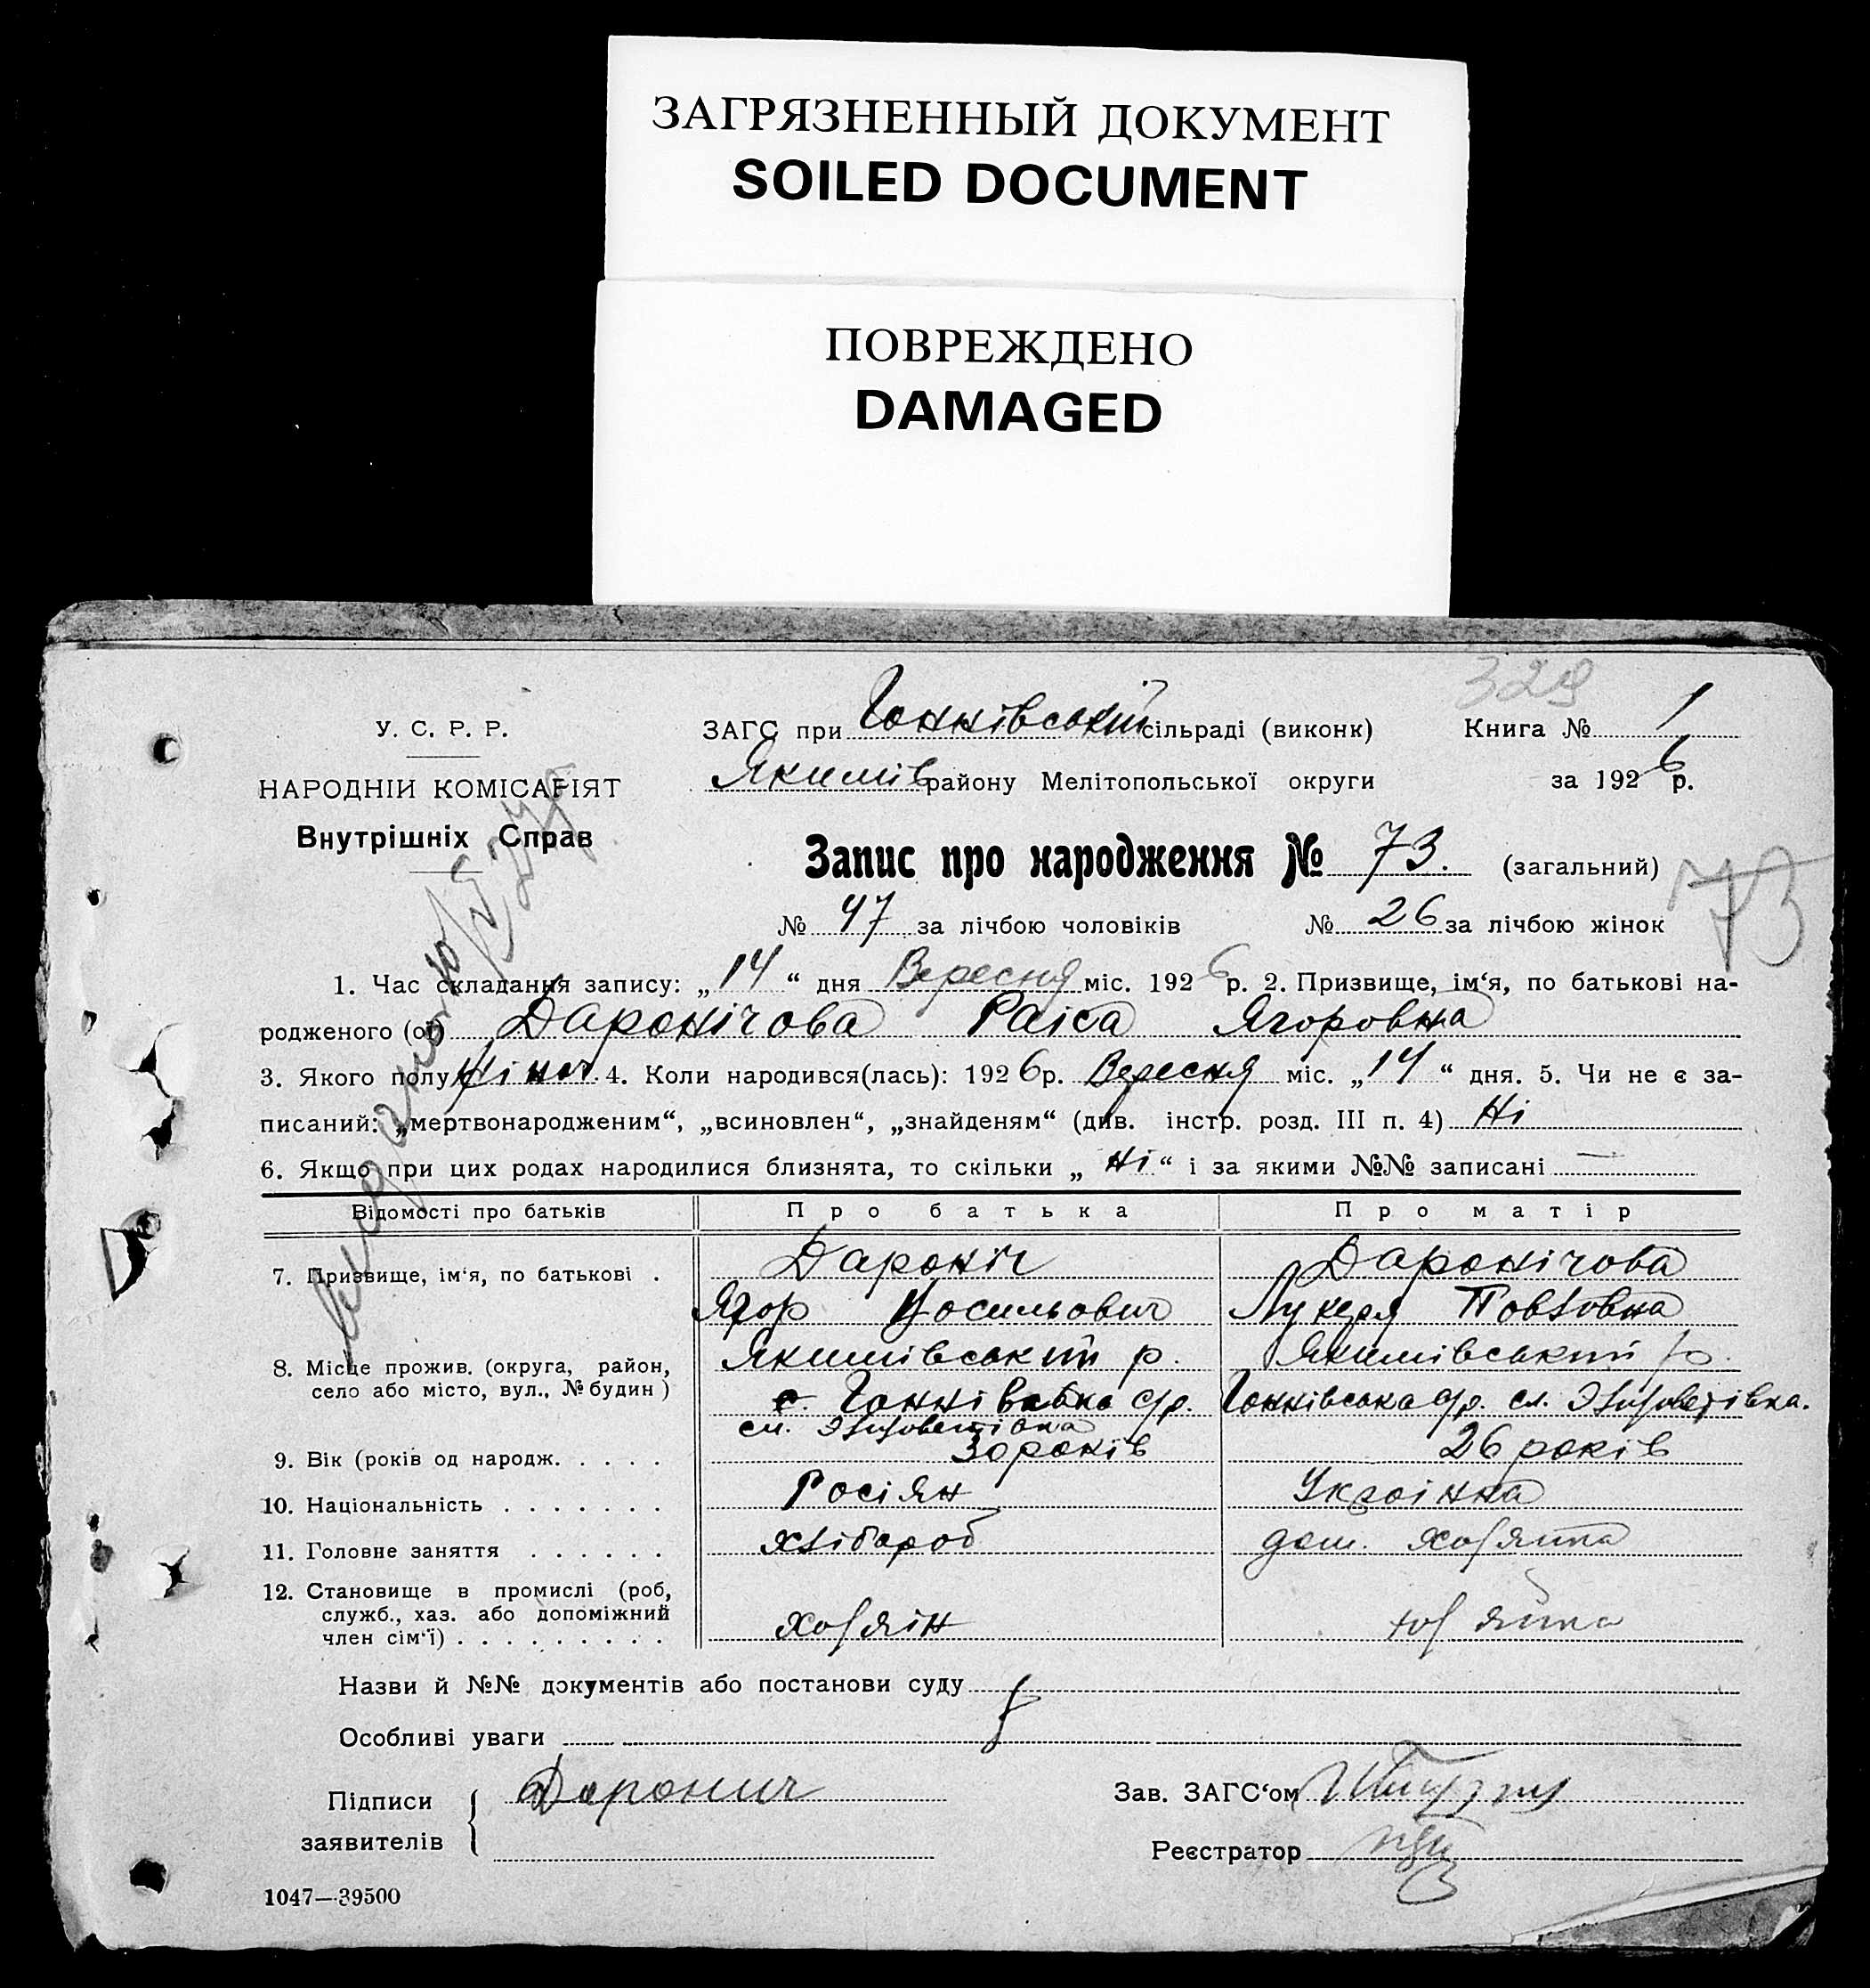 ЗАГРЯЗНЕННЫЙ ДОКУМЕНТ
SOILED DOCUMENT
ПОВРЕЖДЕНО
DAMAGED
329
У. С. Р. Р.
НАРОДНІЙ КОМІСАРІЯТ
Внутрішніх Справ
ЗАГС при Ганнівській сільраді (виконк)
Книга № 1
Якимів району Мелітопольської округи
за 1926 р.
Запис про народження № 73. (загальний)
73
№ 47 за лічбою чоловіків № 26 за лічбою жінок
1. Час складання запису: „14“ дня Вересня міс. 1926 р. 2. Призвище, ім‘я, по батькові на-
родженого (ої) Даронічова Раіса Ягоровна
3. Якого полу жіноч. 4. Коли народився(лась): 1926 р. Вересня міс. „14“ дня. 5. Чи не є за-
писаний: „мертвонародженим“, „всиновлен“, „знайденям“ (див. інстр. розд. III п. 4) Ні
6. Якщо при цих родах народилися близнята, то скільки „ні“ і за якими №№ записані —
Відомості про батьків Про батька Про матір
7. Призвище, ім‘я, по батькові . Дароніч Даронічова
Ягор Восильович Лукеря Повловна
8. Місце прожив. (округа, район, Якимівський р. Якимівський р.
село або місто, вул., № будин) с. Ганнівська с/р. Ганнівська с/р. сл. Элизоветівка.
сл. Элизоветівка
9. Вік (років од народж. . . . . 30 років 26 років
10. Національність . . . . . . . Росіян Украінка
11. Головне заняття . . . . . . хлібороб дом. хозяйка
12. Становище в промислі (роб,
служб., хаз. або допоміжний
член сім‘ї) . . . . . . . . . хозяін хозяйка
Назви й №№ документів або постанови суду
Особливі уваги
Підписи Доронич
заявителів
Зав. ЗАГС‘ом
Реєстратор
1047—39500